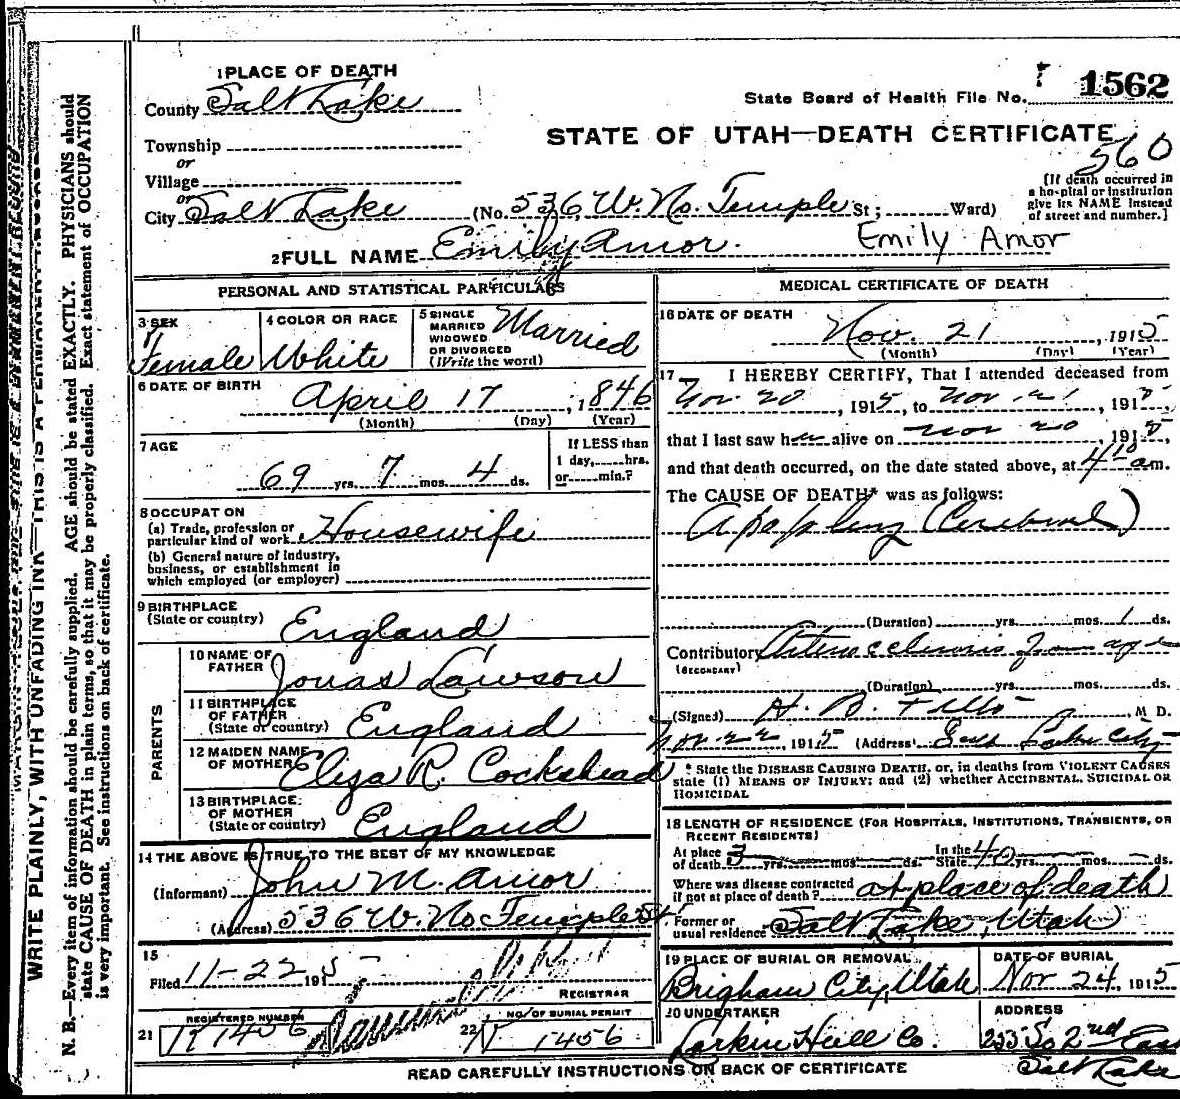 1 PLACE OF DEATH
County Salt Lake
Township
or
Village
or
City Salt Lake (No. 536 W. No. Temple St ; Ward)
State Board of Health File No. 1562
STATE OF UTAH—DEATH CERTIFICATE
560
[If death occurred in
a hospital or institution
give its NAME instead
of street and number.]
2 FULL NAME Emily Amor. Emily Amor
PERSONAL AND STATISTICAL PARTICULARS
3 SEX
Female
4 COLOR OR RACE
White
5 SINGLE
MARRIED
WIDOWED
OR DIVORCED
(Write the word)
Married
6 DATE OF BIRTH
April 17, 1846
(Month) (Day) (Year)
7 AGE
69 yrs. 7 mos. 4 ds.
If LESS than
1 day, hrs.
or min.?
8 OCCUPATION
(a) Trade, profession or
particular kind of work Housewife
(b) General nature of industry,
business, or establishment in
which employed (or employer)
9 BIRTHPLACE
(State or country) England
PARENTS
10 NAME OF
FATHER Jonas Lawson
11 BIRTHPLACE
OF FATHER
(State or country) England
12 MAIDEN NAME
OF MOTHER Eliza R. Cockshead
13 BIRTHPLACE
OF MOTHER
(State or country) England
14 THE ABOVE IS TRUE TO THE BEST OF MY KNOWLEDGE
(Informant) John M. Amor
(Address) 536 W. No Temple St.
15
Filed 11-22 1915
REGISTRAR
21 REGISTERED NUMBER
1456
22 NO. OF BURIAL PERMIT
1456
MEDICAL CERTIFICATE OF DEATH
16 DATE OF DEATH
Nov. 21, 1915
(Month) (Day) (Year)
17 I HEREBY CERTIFY, That I attended deceased from
Nov 20, 1915, to Nov 21, 1915,
that I last saw her alive on Nov 20, 1915,
and that death occurred, on the date stated above, at 4 10 am.
The CAUSE OF DEATH* was as follows:
Apoplexy (Cerebral)
(Duration) yrs. mos. 1 ds.
Contributory Arteriosclerosis from age
(SECONDARY)
(Duration) yrs. mos. ds.
(Signed) H. B. M. D.
Nov 22, 1915 (Address) Salt Lake City
* State the DISEASE CAUSING DEATH, or, in deaths from VIOLENT CAUSES
state (1) MEANS OF INJURY; and (2) whether ACCIDENTAL, SUICIDAL OR
HOMICIDAL
18 LENGTH OF RESIDENCE (FOR HOSPITALS, INSTITUTIONS, TRANSIENTS, OR
RECENT RESIDENTS)
At place
of death 3 yrs. mos. ds. In the
State 40 yrs. mos. ds.
Where was disease contracted
if not at place of death? at place of death
Former or
usual residence Salt Lake, Utah
19 PLACE OF BURIAL OR REMOVAL
Brigham City, Utah
DATE OF BURIAL
Nov 24, 1915
20 UNDERTAKER
Larkin Hull Co.
ADDRESS
So 2nd East
Salt Lake
READ CAREFULLY INSTRUCTIONS ON BACK OF CERTIFICATE
WRITE PLAINLY, WITH UNFADING INK—THIS IS A PERMANENT RECORD
N. B.—Every item of information should be carefully supplied. AGE should be stated EXACTLY. PHYSICIANS should
state CAUSE OF DEATH in plain terms, so that it may be properly classified. Exact statement of OCCUPATION
is very important. See instructions on back of certificate.